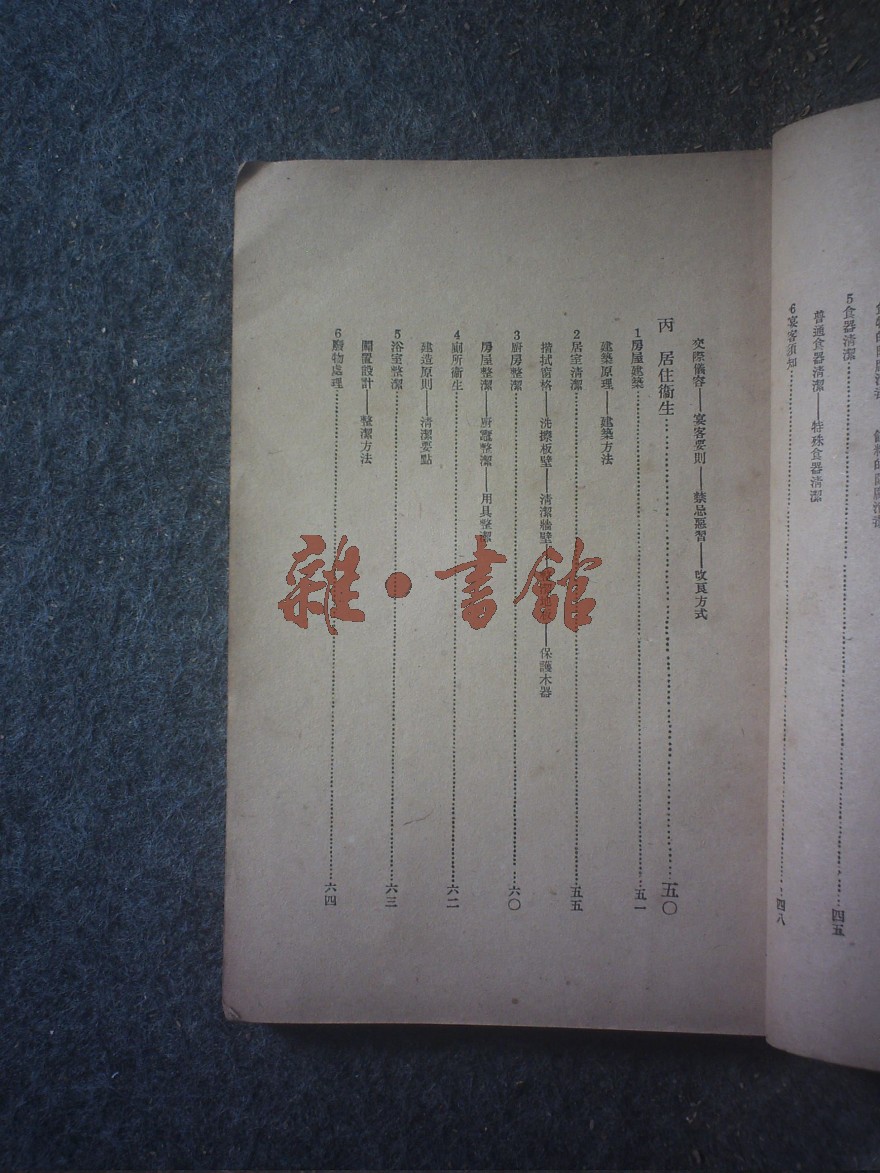 5食器清潔……四五
普通食器清潔——特殊食器清潔
6宴客須知……四八
交際儀容——宴客要則——禁忌惡習——改良方式
丙 居住衞生……五〇
1房屋建築……五一
建築原理——建築方法
2居室清潔……五五
揩拭窗格——洗擦板壁——清潔牆壁——保護木器
3廚房整潔……六〇
房屋整潔——廚竈整潔——用具整潔
4廁所衞生……六二
建造原則——清潔要點
5浴室整潔……六三
闢置設計——整潔方法
6廢物處理……六四
雜·書館